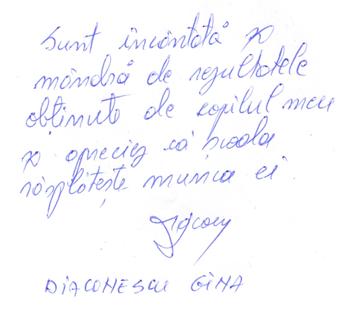 Sunt încântată și
mândră de rezultatele
obținute de copilul meu
și apreciez că școala
răsplătește munca ei.
DIACONESCU GINA